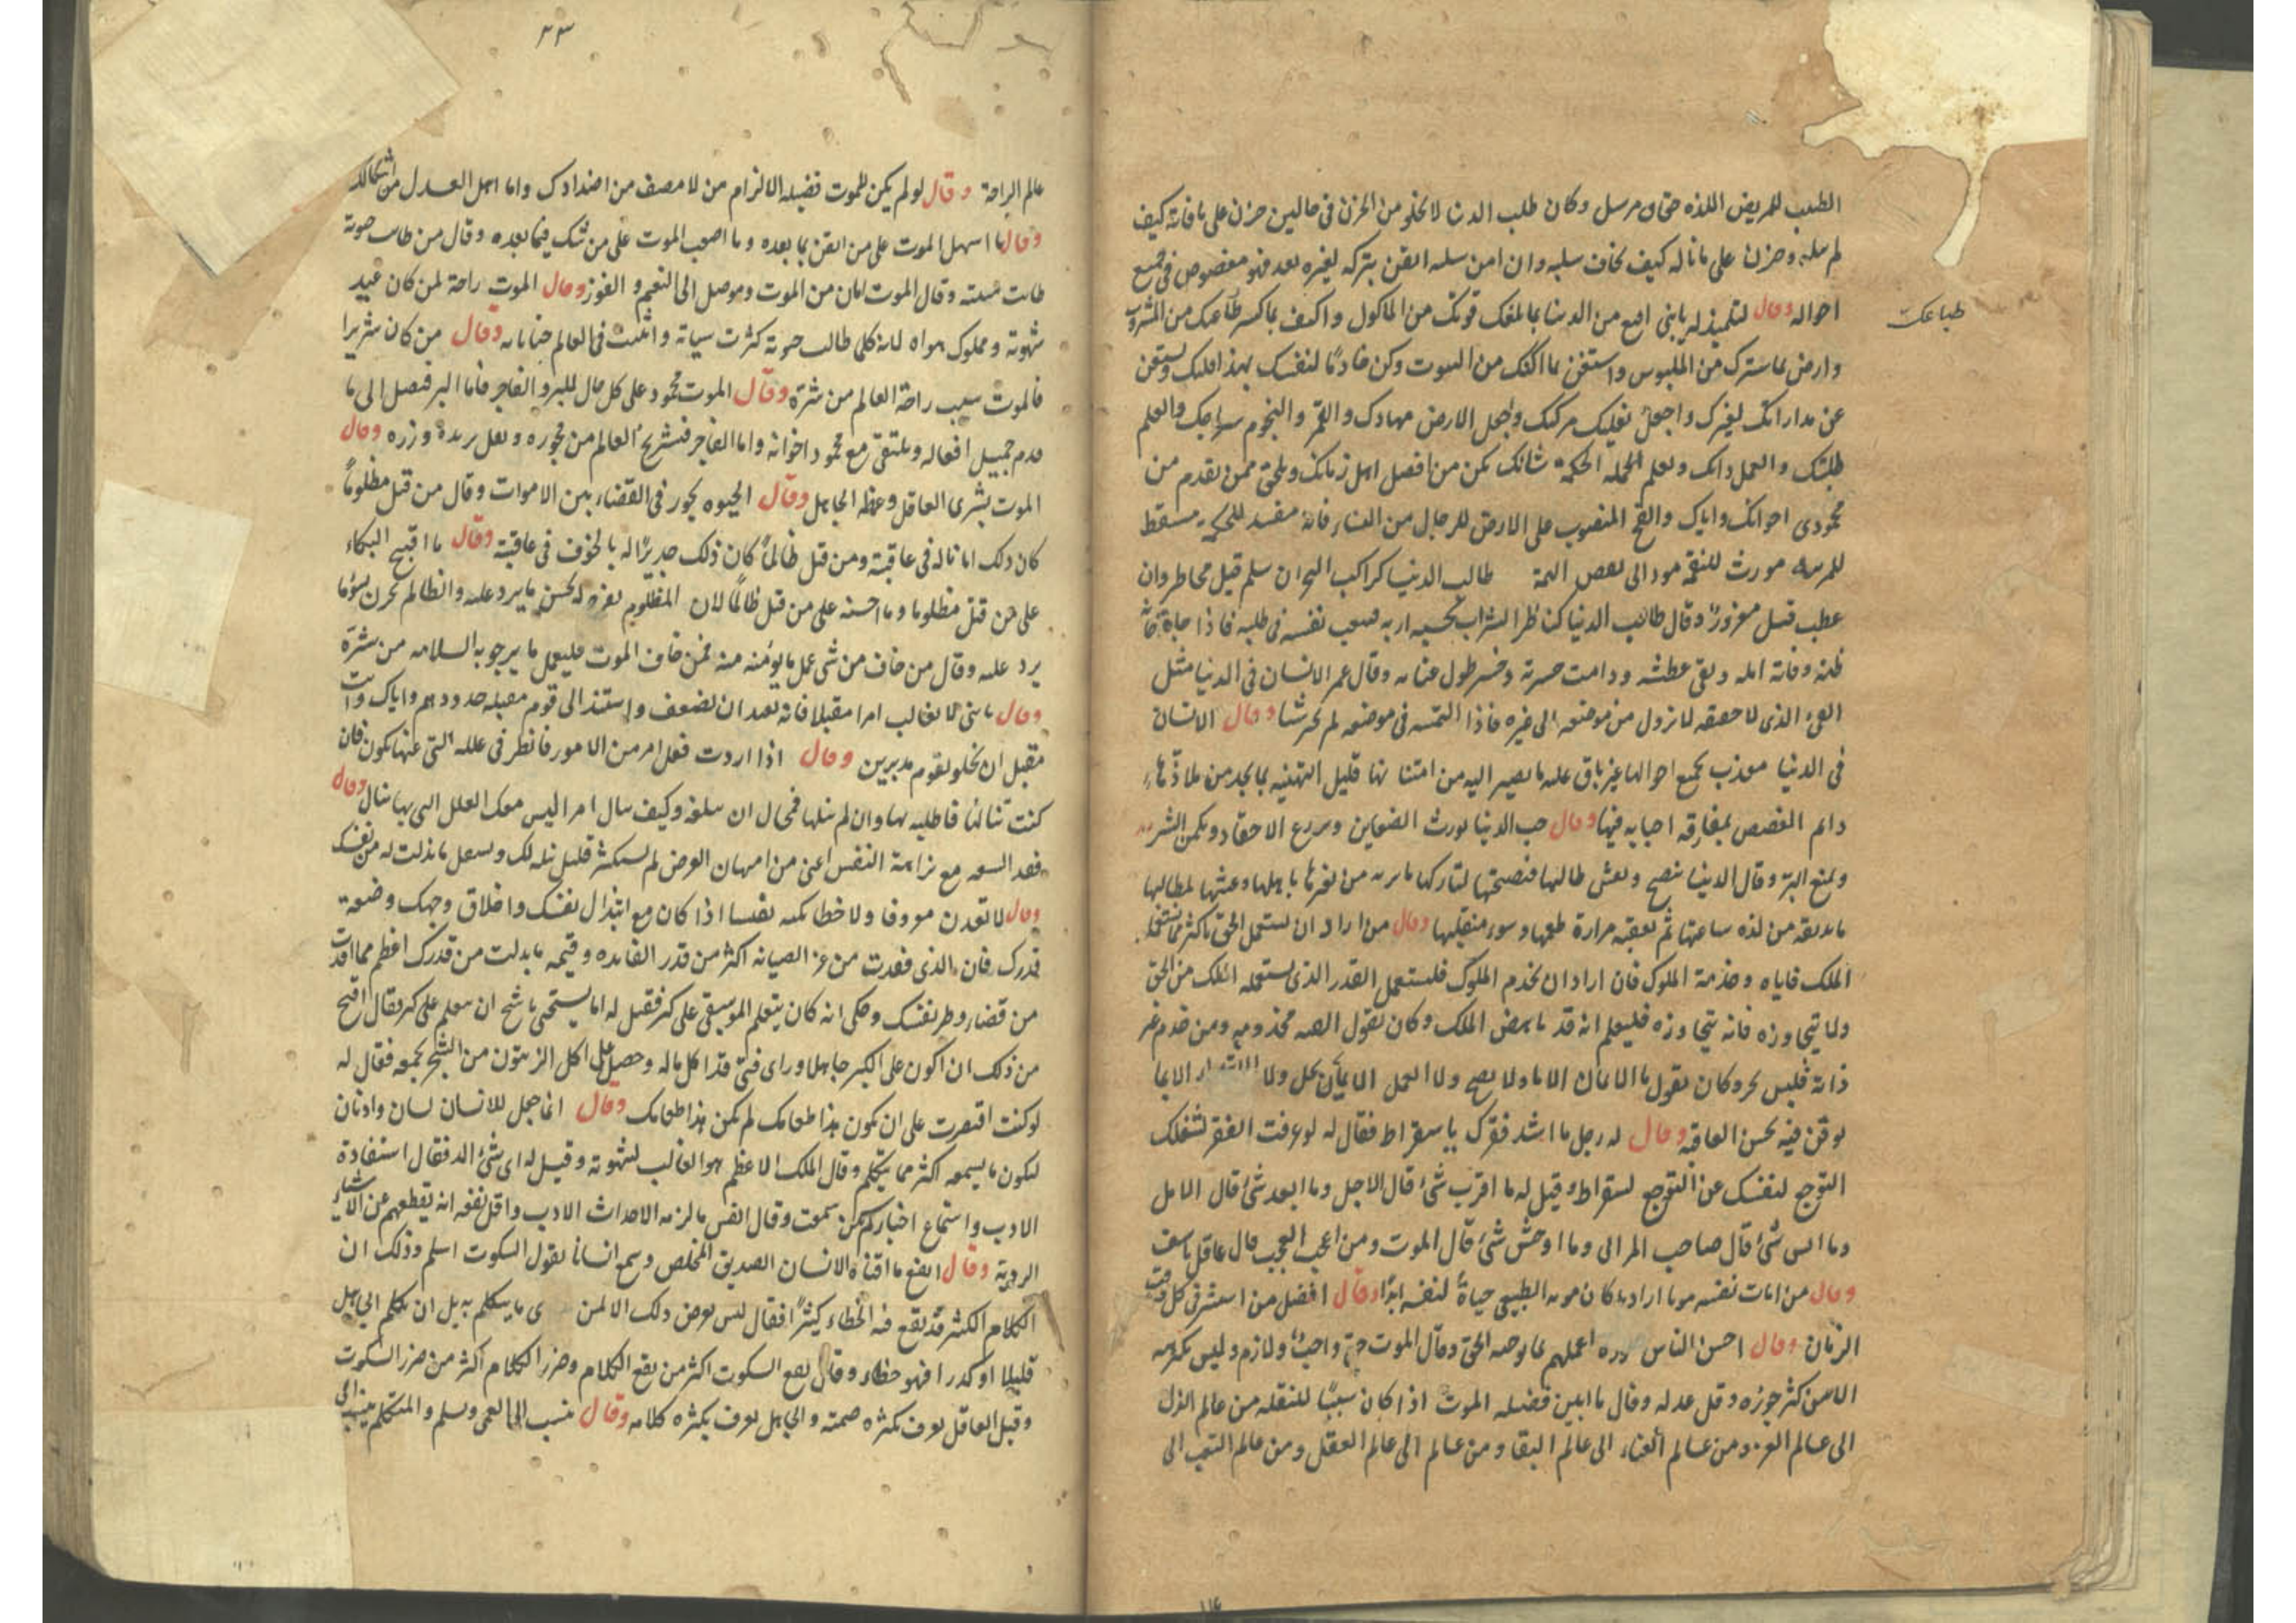 الطبيب للمريض اللذه حتى وكان طلب الدنيا لا يخلو من الحزن فى حالين حزن على ما فاته كيف
لم ينله وحزن على ما ناله كيف يخاف سلبه وان امن سلبه ايقن بتركه لغيره بعده فهو مغصوص فى جميع
احواله وقال لتلميذ له يا بنى اقنع من الدنيا بما يبلغك قوتك من الماكول واكتف بما كسر ظماءك من المشروب
طباعك
وارض بما سترك من الملبوس واستغن بما اكنك من البيوت وكن خادمًا لنفسك
عن مداراتك لغيرك واجعل نعليك مركبك واجعل الارض مهادك والقمر والنجوم سراجك والعلم
طلبتك والعمل دابك وتعلم الحكمة شانك تكن من افضل اهل زمانك وتلحق بمن تقدم من
محمودى اخوانك واياك والفخ المنصوب على الارض للرجال من النساء فانه مفسد للحكمة مسقط
للمرتبه مورث للنقمة مود الى بعض طالب الدنيا كراكب البحر ان سلم قيل مخاطر وان
عطب قيل مغرورًا وقال طالب الدنيا كناظر السراب يحسبه فيتعب نفسه فى طلبه فاذا جاءه خانه
ظنه وفاته امله وبقى عطشه ودامت حسرته وخسر طول عنائه وقال عمر الانسان فى الدنيا مثل
الفىء الذى لا حقيقه لا يزول من موضعه الى غيره فاذا التمسه فى موضعه لم تجد شيئا وقال الانسان
فى الدنيا معذب بجميع احوالها غير باق عليه ما يصير اليه من قليل التهنيه بما يجد من ملاذها
دائم الغصص بمفارقة احبابه فيها وقال حب الدنيا يورث الضغاين ويزرع الاحقاد ويكمن الشر
ويمنع البر وقال الدنيا تنصح وتغش طالبها فنصيحتها لتاركها ما تريه من تغيرها باهلها وغشها لطالبها
ما تذيقه من لذه ساعتها ثم تعقبه مرارة طعمها وسوء منقلبها وقال من اراد ان يستعمل الحق باكثر مما
الملك فاياه وخدمة الملوك فان اراد ان يخدم الملوك فليستعمل القدر الذى يستعمله الملك من الحق
ولا يتجاوزه فانه متى تجاوزه فليعلم انه قد ناقض الملك وكان يقول الصبر ومن خدم غير
ذاته فليس بحر وكان يقول ما الايمان الا ولا يصح ولا العمل الا بان يحل ولا
يوقن فيه بحسن العاقبة وقال له رجل ما اشد فقرك يا سقراط فقال له لو عرفت الفقر لشغلك
التوجع لنفسك عن التوجع لسقراط وقيل له ما اقرب شئ قال الاجل وما ابعد شئ قال الامل
وما انس شئ قال صاحب وما اوحش شئ قال الموت ومن اعجب العجب قال عاقل ياسف
وقال من امات نفسه موتا اراديا كان موته الطبيعى حياة لنفسه ابدًا وقال افضل من استشرق كل وقت
الزمان وقال احسن الناس اعملهم بما يوجبه الحق وقال الموت حق واجب ولازم وليس يكرهه
الا من كثر جوره وقل عدله وقال ما ابين فضيلة الموت اذا كان سببًا للنقله من عالم الذل
الى عالم العز ومن عالم الفناء الى عالم البقا ومن عالم الى عالم العقل ومن عالم التعب الى
٣٣
عالم الراحة وقال لو لم يكن للموت فضيله الا الزام من لا منصف من اضدادك واما اهل العدل من اشكالك
وقال ما اسهل الموت على من ايقن بما بعده وما اصعب الموت على من شك فيما بعده وقال من طابت حيوته
طابت ميتته وقال الموت امان من الموت وموصل الى النعيم والفوز وقال الموت راحة لمن كان عبد
شهوته ومملوك هواه لانه كلما طالت حيوته كثرت سيئاته وانبثت فى العالم جناياته وقال من كان شريرا
فالموت سبب راحة العالم من شره وقال الموت محمود على كل حال للبر والفاجر فاما البر فيصل الى ما
قدم جميل افعاله ويلتقى مع محمود اخوانه واما الفاجر فيستريح العالم من فجوره ويقل وزره وقال
الموت بشرى العاقل وعظة الجاهل وقال الحيوه تجور فى القضاء بين الاموات وقال من قتل مظلومًا
كان ذلك امانا له فى عاقبته ومن قتل ظالمًا كان ذلك جديرًا له بالخوف فى عاقبته وقال ما اقبح البكاء
على من قتل مظلوما وما احسنه على من قتل ظالمًا لان المظلوم يفرح له بحسن ما يرد عليه والظالم يحزن بسوء ما
يرد عليه وقال من خاف من شئ عمل ما يؤمنه منه فمن خاف الموت فليعمل ما يرجو به السلامه من شره
وقال يا بنى لا تغالب امرا مقبلا فانه بعد ان يضعف واستند الى قوم مقبله جدودهم واياك وانت
مقبل ان تخلو بقوم مدبرين وقال اذا اردت فعل امر من الامور فانظر فى علله التى عنها تكون فان
كنت تنالها فاطلبه بها وان لم تنلها فمحال ان تبلغه وكيف تنال امرا ليس معك العلل التى بها ينال وقال
فقد السعه مع نزاهة النفس اغنى من امتهان العرض لم يستكثر قليل نيله لك ويستقل ما بذلت له من نفسك
وقال لا تعدن معروفا ولا حظا تكسبه نفيسا اذا كان مع ابتذال نفسك واخلاق وجهك وضعة
قدرك فان الذى فقدت من عز الصيانه اكثر من قدر الفائده وقيمه ما بذلت من قدرك اعظم مما افدت
من قضاء وطر نفسك وحكى انه كان يتعلم الموسيقى على كبر فقيل له اما يستحى يا شيخ ان تتعلم على كبر فقال اقبح
من ذلك ان اكون على الكبر جاهلا وراى فتى قد اكل ماله وحصل على اكل الزيتون من الشجر يجمعه فقال له
لو كنت اقتصرت على ان يكون هذا طعامك لم يكن هذا طعامك وقال انما جعل للانسان لسان واذنان
ليكون ما يسمعه اكثر مما يتكلم وقال الملك الاعظم هو الغالب لشهوته وقيل له اى شئ الذ فقال استفادة
الادب واستماع اخبار لم تكن سمعت وقال انفس ما لزمه الاحداث الادب واقل نفعه انه يقطعهم عن الاشياء
الرديئة وقال انفع ما اقتناه الانسان الصديق المخلص وسمع انسانا يقول السكوت اسلم وذلك ان
الكلام الكثير قد يقع فيه الخطاء كثيرًا فقال ليس يعرض ذلك الا لمن ما يتكلم به بل ان تكلم
قليلا او كثيرا فهو خطاء وقال نفع السكوت اكثر من نفع الكلام وضرر الكلام اكثر من ضرر السكوت
وقيل العاقل يعرف بكثره صمته والجاهل يعرف بكثره كلامه وقال ينسب الى العى ويسلم والمتكلم ينسب الى